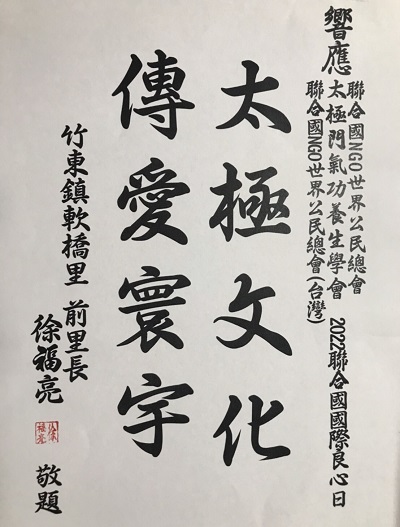 響應
聯合國NGO世界公民總會
太極門氣功養生學會
聯合國NGO世界公民總會(台灣)
2022聯合國國際良心日
太極文化
傳愛寰宇
竹東鎮軟橋里 前里長
徐福亮
敬題